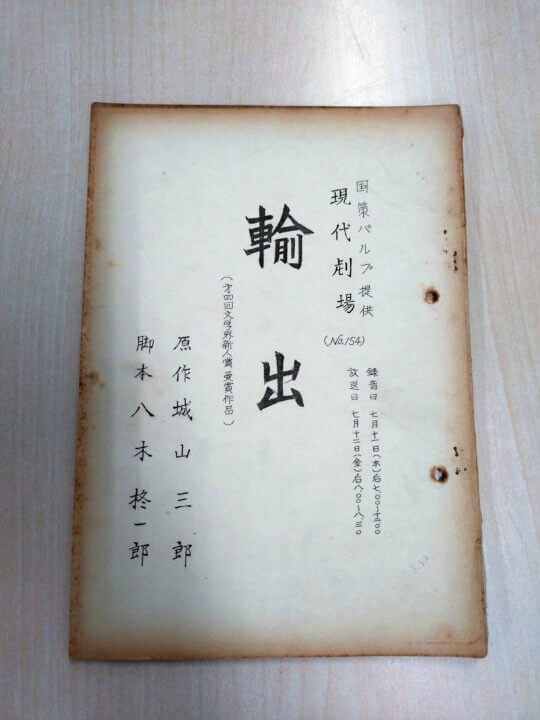 国策パルプ提供
現代劇場
(No.154)
録音日 七月十一日(木)后七.00〜十二00
放送日 七月十二日(金)后八.00〜八.30
輸出
(才四回文学界新人賞受賞作品)
原作 城山三郎
脚本 八木柊一郎